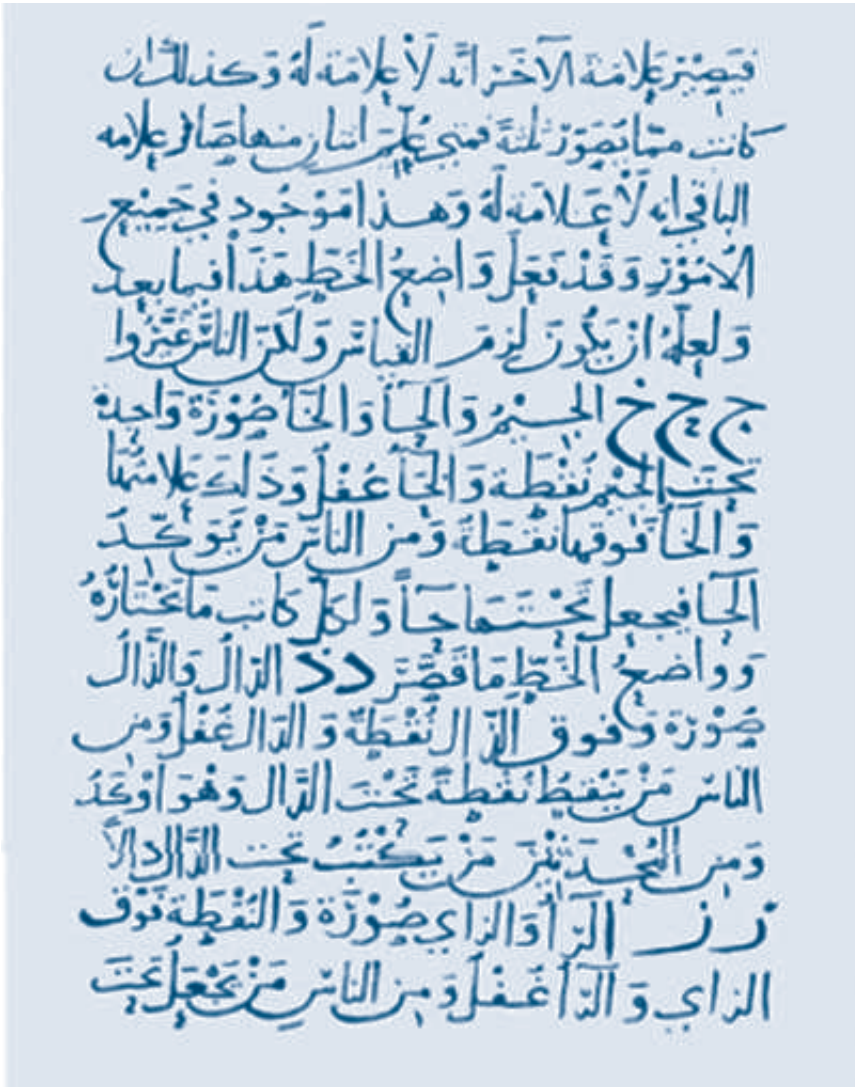 فيصير علامة الآخر انه لا علامة له وكذلك ان
كانت مما يصور ثلثة فمتى عُلِّم اثنان منها صار علامه
الباقي انه لا علامة له وهذا موجود في جميع
الامور وقد فعل واضع الخط هذا فيما بعد
ولعله ان يكون لزم القياس ولكن الناس غيّروا
ج ح خ الجيم والحا والخا صورة واحدة
تحت الجيم نقطة والحا غفل وذلك علامتها
والخا فوقها نقطة ومن الناس من يوكد
الحا فيجعل تحتها حاً ولكل كاتب ما يختاره
وواضع الخط ما قصّر د ذ الدال والذال
صورة وفوق الذال نقطة والدال غفل ومن
الناس من ينقط نقطة تحت الدال وهو اوكد
ومن المحدثين من يكتب تحت الدال دالاً
ر ز الرا والزاي صورة والنقطة فوق
الزاي والرا غفل ومن الناس من يجعل تحت